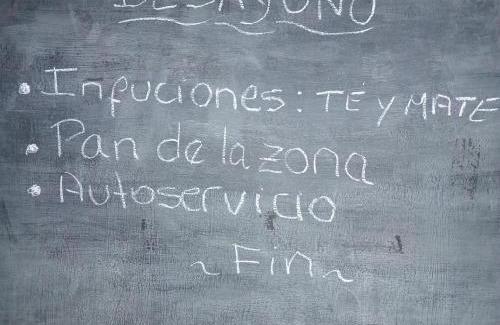 DESAYUNO
• Infuciones: TÉ Y MATE
• Pan de la zona
• Autoservicio
~ Fin ~